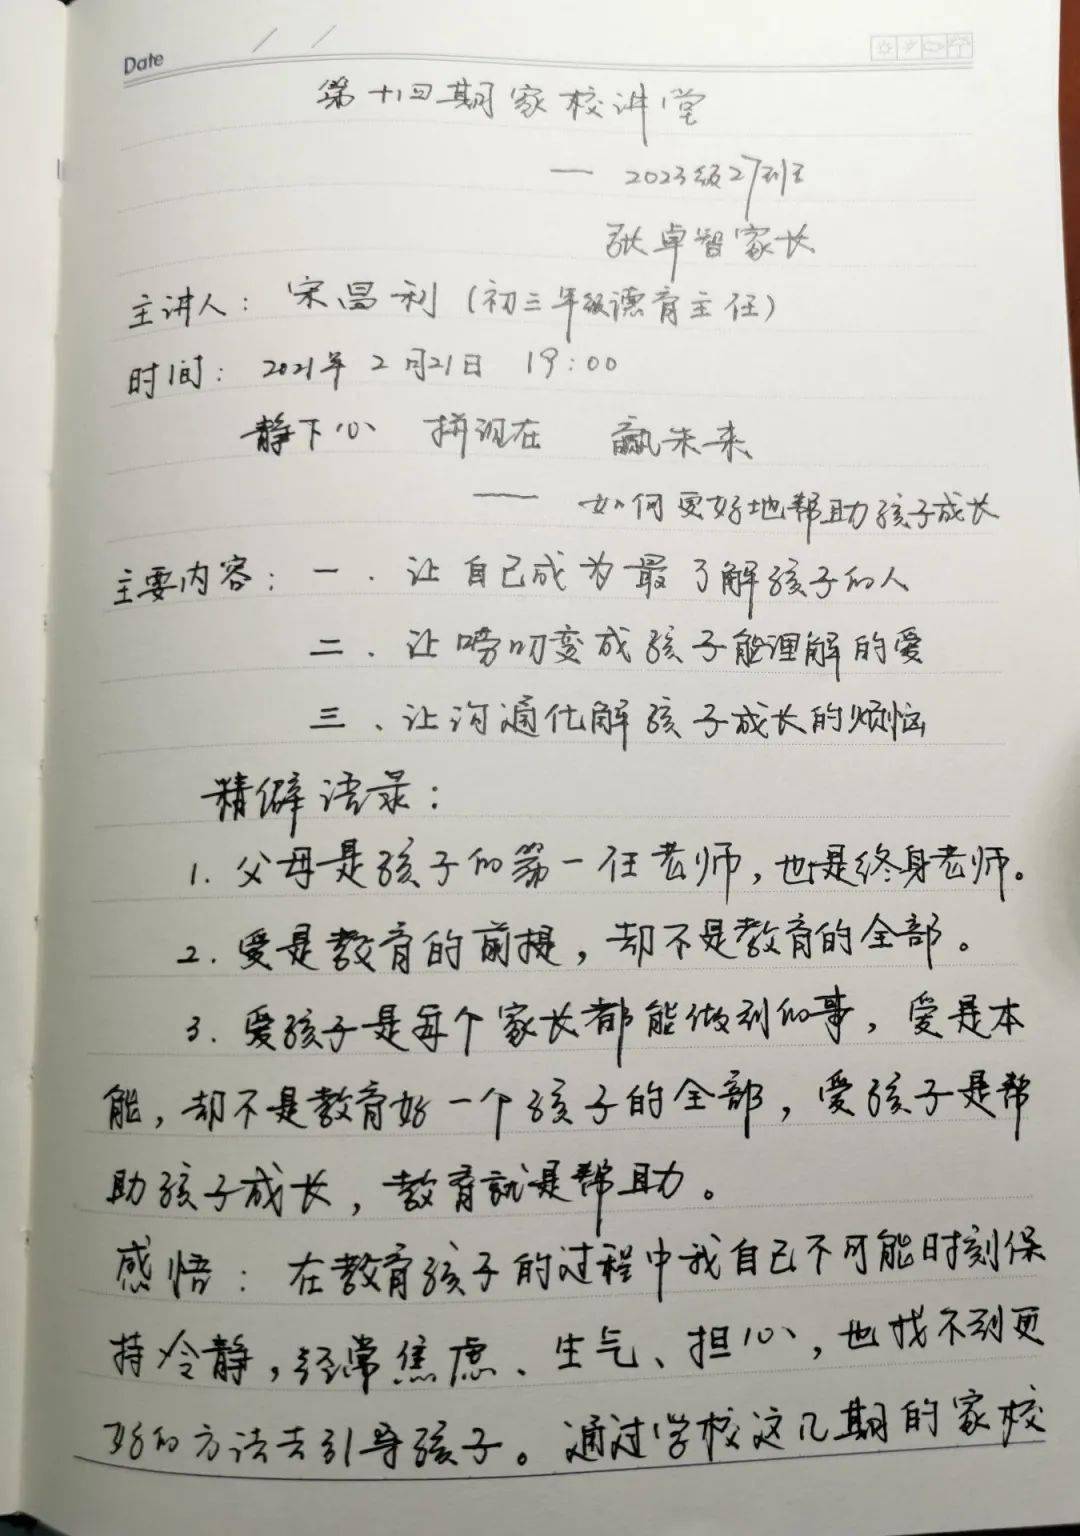 Date / /
第十四期家校讲堂
— 2023级27班
张卓智家长
主讲人：宋昌利（初三年级德育主任）
时间：2021年2月21日 19:00
静下心 拼现在 赢未来
—— 如何更好地帮助孩子成长
主要内容：一、让自己成为最了解孩子的人
二、让唠叨变成孩子能理解的爱
三、让沟通化解孩子成长的烦恼
精僻语录：
1. 父母是孩子的第一任老师，也是终身老师。
2. 爱是教育的前提，却不是教育的全部。
3. 爱孩子是每个家长都能做到的事，爱是本
能，却不是教育好一个孩子的全部，爱孩子是帮
助孩子成长，教育就是帮助。
感悟：在教育孩子的过程中我自己不可能时刻保
持冷静，经常焦虑、生气、担心，也找不到更
好的方法去引导孩子。通过学校这几期的家校